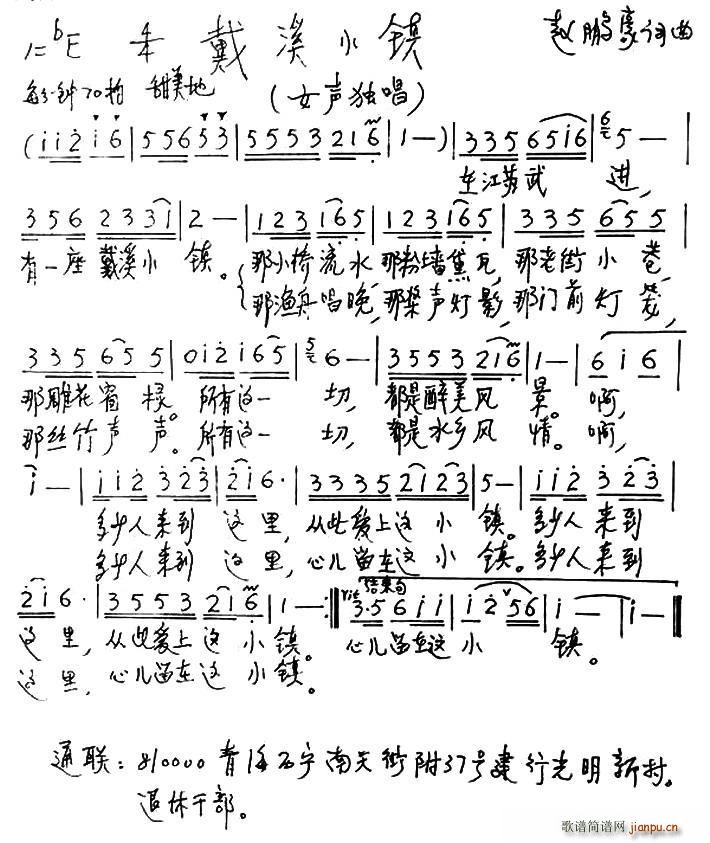 1=bE 来 戴 溪 小 镇 赵鹏豪词曲
每分钟70拍 甜美地 (女声独唱)
(i i 2 i 6 | 5 5 6 5 3 | 5 5 5 3 2 1 6 | 1 —) | 3 3 5 6 5 i 6 | 5 — |
在江苏武 进,
3 5 6 2 3 3 1 | 2 — | 1 2 3 1 6 5 | 1 2 3 1 6 5 | 3 3 5 6 5 5 |
有一座 戴溪小 镇。 那小桥流水,那粉墙黛瓦,那老街小 巷,
那渔舟唱晚,那桨声灯影,那门前灯 笼,
3 3 5 6 5 5 | 0 i 2 i 6 5 | 6 — | 3 5 5 3 2 1 6 | 1 — | 6 i 6 |
那雕花窗 棂。所有这一 切, 都是醉美风 景。啊,
那丝竹声 声。所有这一 切, 都是水乡风 情。啊,
i — | i i 2 3 2 3 | 2 i 6 · | 3 3 3 5 2 1 2 3 | 5 — | i i 2 3 2 3 |
多少人来到 这里, 从此爱上这 小 镇。多少人来到
多少人来到 这里, 心儿留在这 小 镇。多少人来到
结束句
2 i 6 · | 3 5 5 3 2 1 6 | 1 — :‖ rit 3 · 5 6 i i | i 2 5 6 | i — | i — ‖
这里, 从此爱上这 小镇。 心儿留在这 小 镇。
这里, 心儿留在这 小镇。
通联:810000青海西宁南大街附37号建行光明新村。
退休干部。
歌谱简谱网
jianpu.cn